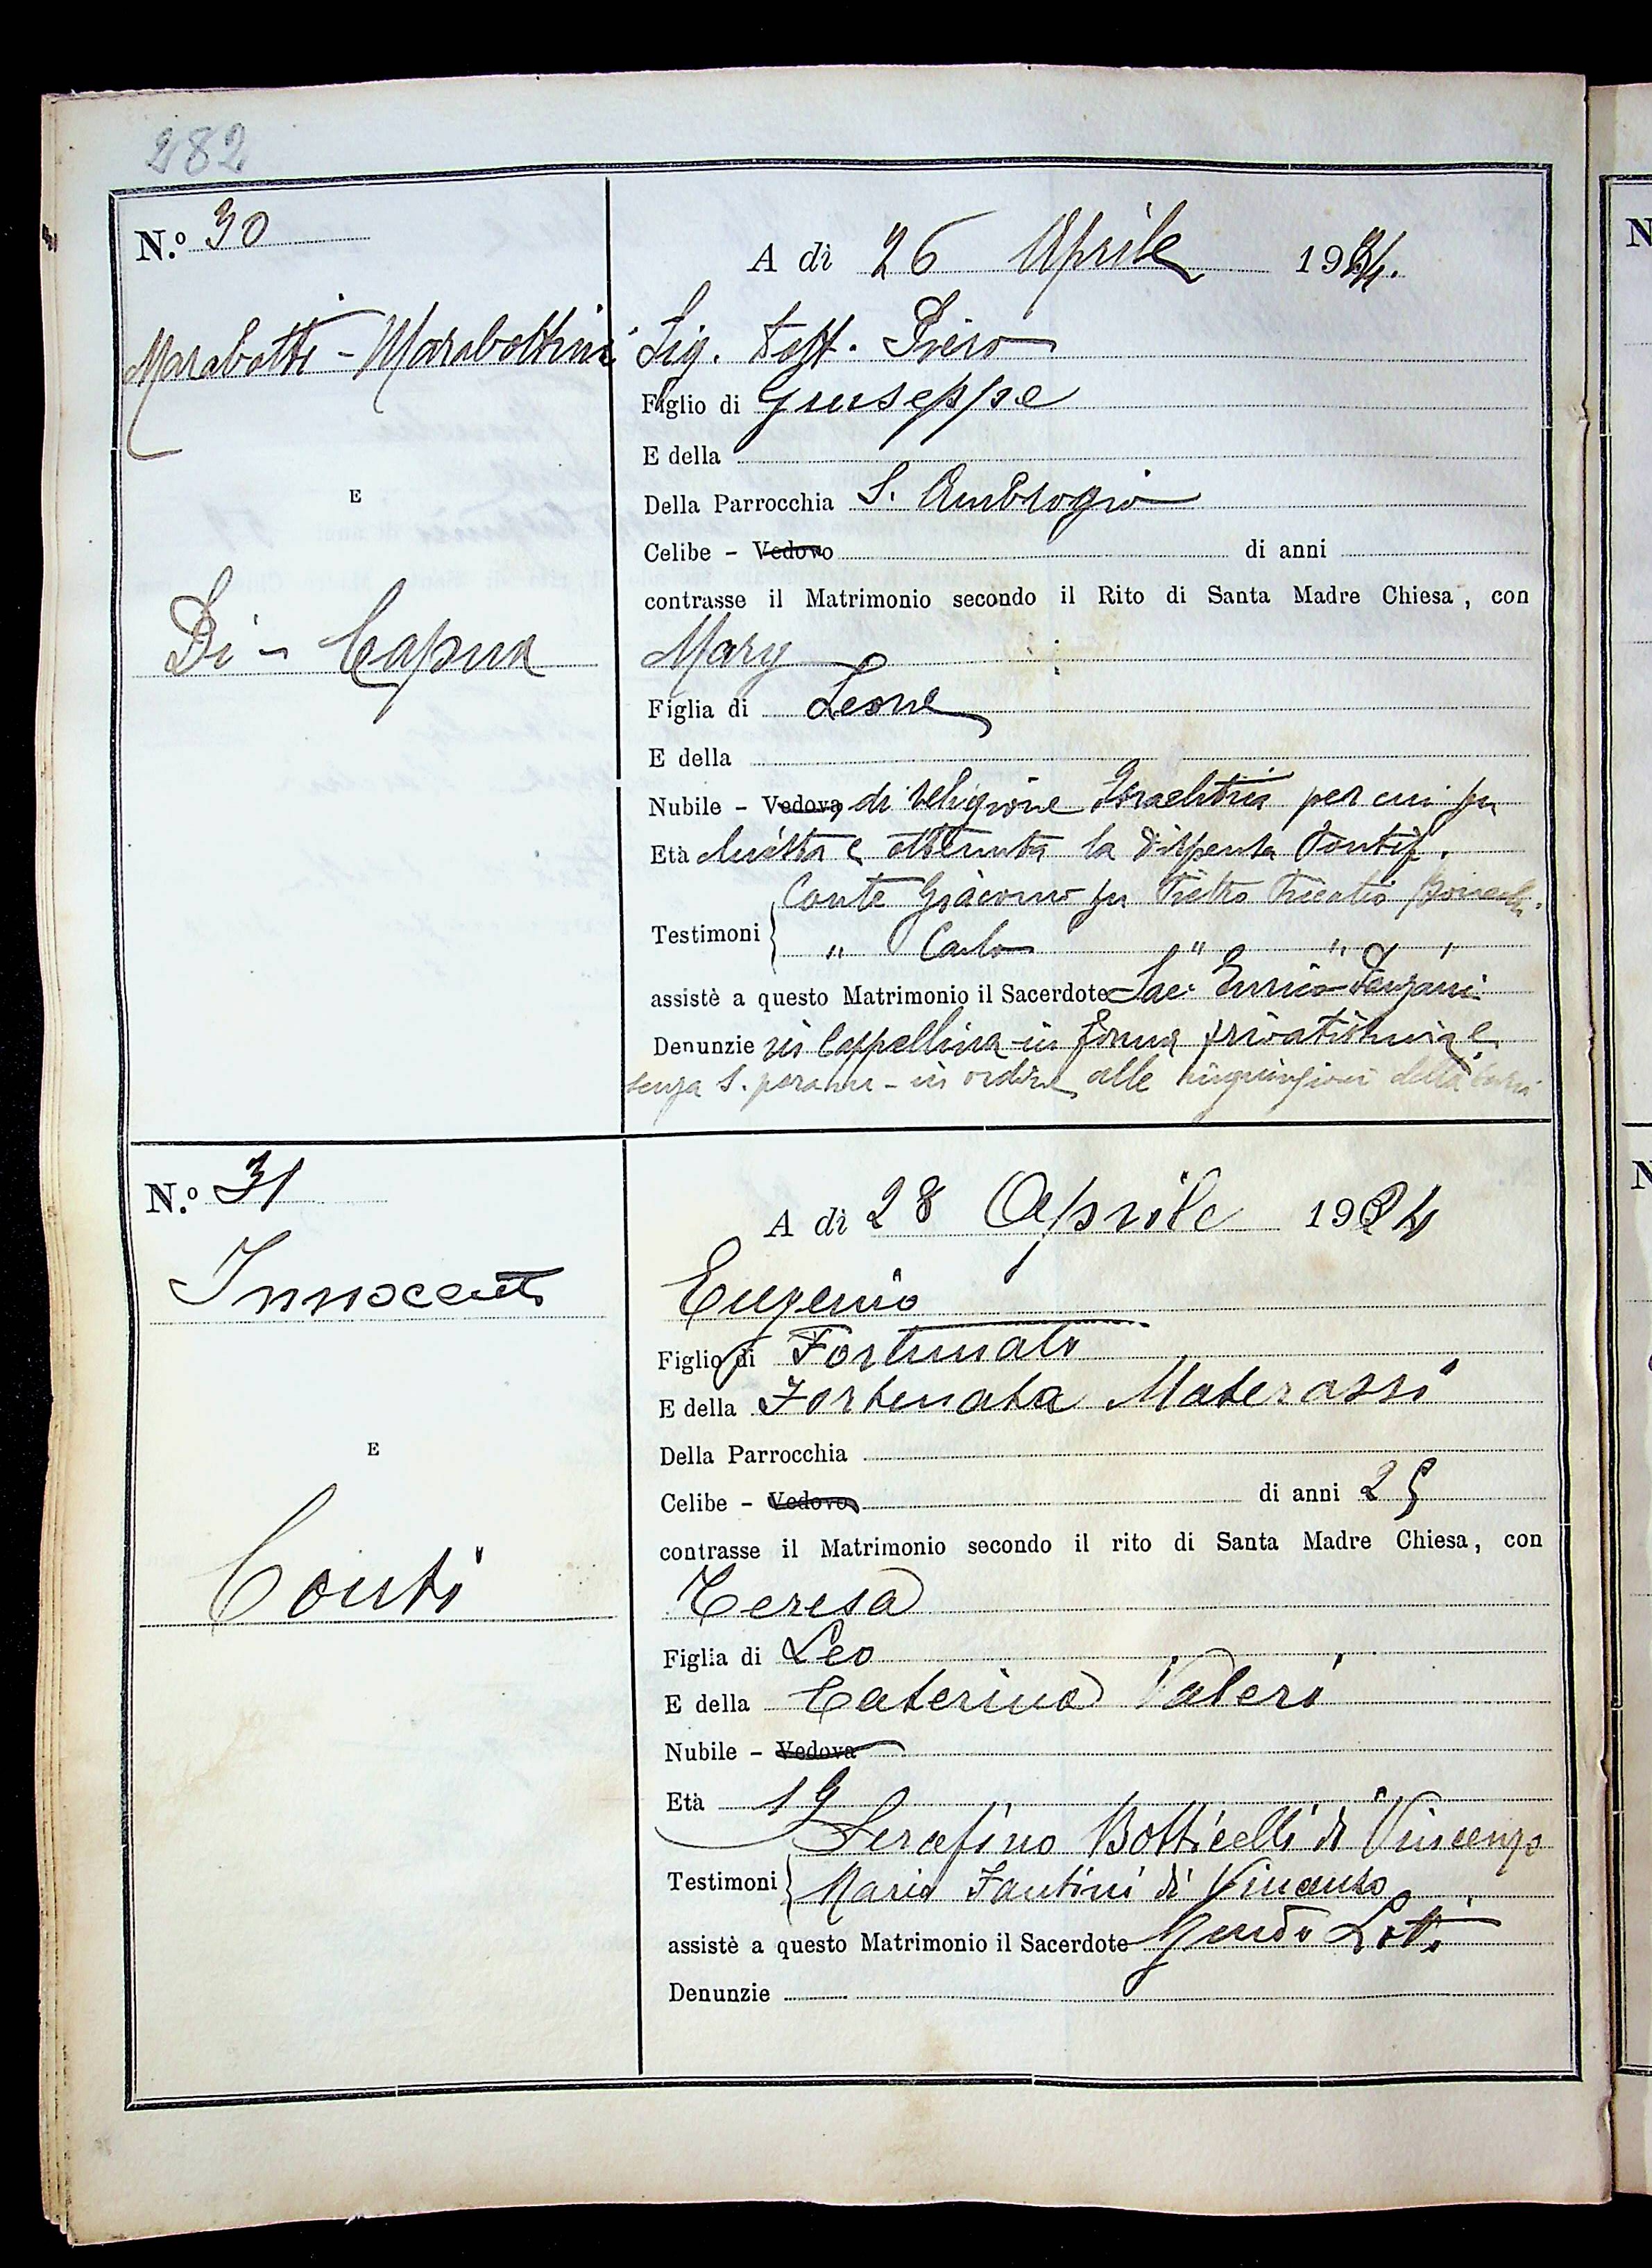 282
N.º 30
A di 26 Aprile 1924.
Marabotti - Marabottini
Sig. Dott. Piero
Figlio di Giuseppe
E della
Della Parrocchia S. Ambrogio
E
Celibe - Vedovo di anni
contrasse il Matrimonio secondo il Rito di Santa Madre Chiesa, con
Di - Capua
Mary
Figlia di Leone
E della
Nubile - Vedova, di religione Israelitica per cui fu
Età chiesta e ottenuta la dispensa Pontif.
Conte Giacomo fu Pietro
Testimoni " Carlo " " "
assistè a questo Matrimonio il Sacerdote Sac. Enrico
Denunzie in Cappellina in forma privatissima e
senza S. - in ordine alle della
N.º 31
A di 28 Aprile 1924
Innocenti
Eugenio
Figlio di Fortunato
E della Fortunata Materassi
E
Della Parrocchia
Celibe - Vedovo di anni 25
contrasse il Matrimonio secondo il rito di Santa Madre Chiesa, con
Conti
Teresa
Figlia di Leo
E della Caterina Valeri
Nubile - Vedova
Età 19
Serafino Botticelli di Vincenzo
Testimoni Maria Fantini di Vincenzo
assistè a questo Matrimonio il Sacerdote Guido Loti
Denunzie